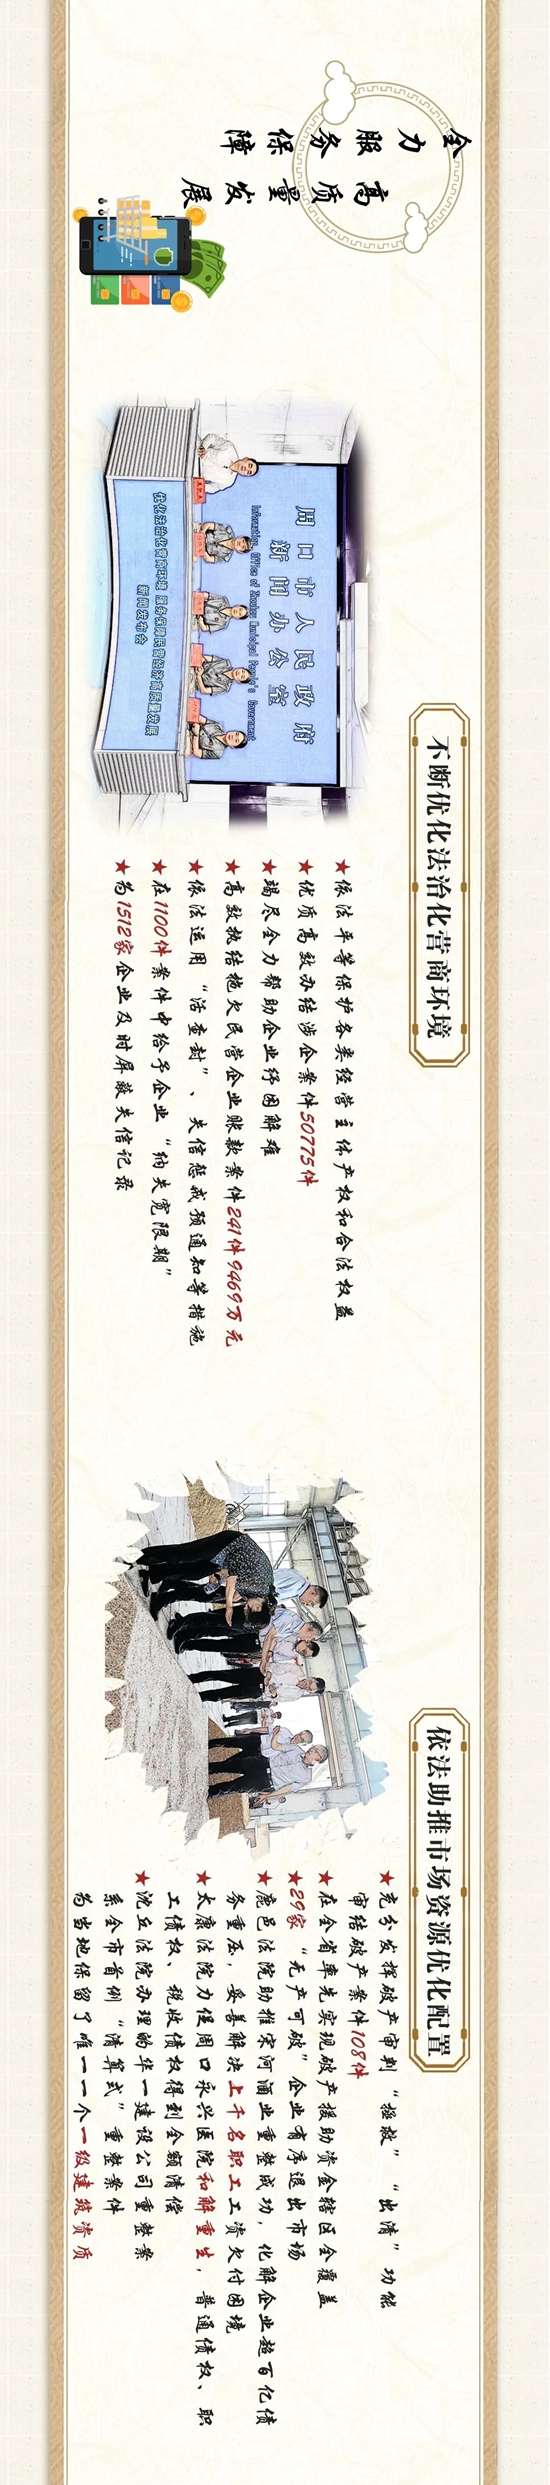 全力服务保障
高质量发展
周口市人民政府
新闻办公室
Information Office of Zhoukou Municipal People's Government
优化法治化营商环境 服务保障民营经济高质量发展
新闻发布会
不断优化法治化营商环境
★依法平等保护各类经营主体产权和合法权益
★优质高效办结涉企案件50775件
★竭尽全力帮助企业纾困解难
★高效执结拖欠民营企业账款案件241件9469万元
★依法运用“活查封”、失信惩戒预通知等措施
★在1100件案件中给予企业“纳失宽限期”
★为1512家企业及时屏蔽失信记录
依法助推市场资源优化配置
★充分发挥破产审判“拯救”“出清”功能
审结破产案件108件
★在全省率先实现破产援助资金辖区全覆盖
★29家“无产可破”企业有序退出市场
★鹿邑法院助推宋河酒业重整成功，化解企业超百亿债
务重压，妥善解决上千名职工工资欠付困境
★太康法院力促周口永兴医院和解重生，普通债权、职
工债权、税收债权得到全额清偿
★沈丘法院办理的华一建设公司重整案
系全市首例“清算式”重整案件
为当地保留了唯一一个一级建筑资质